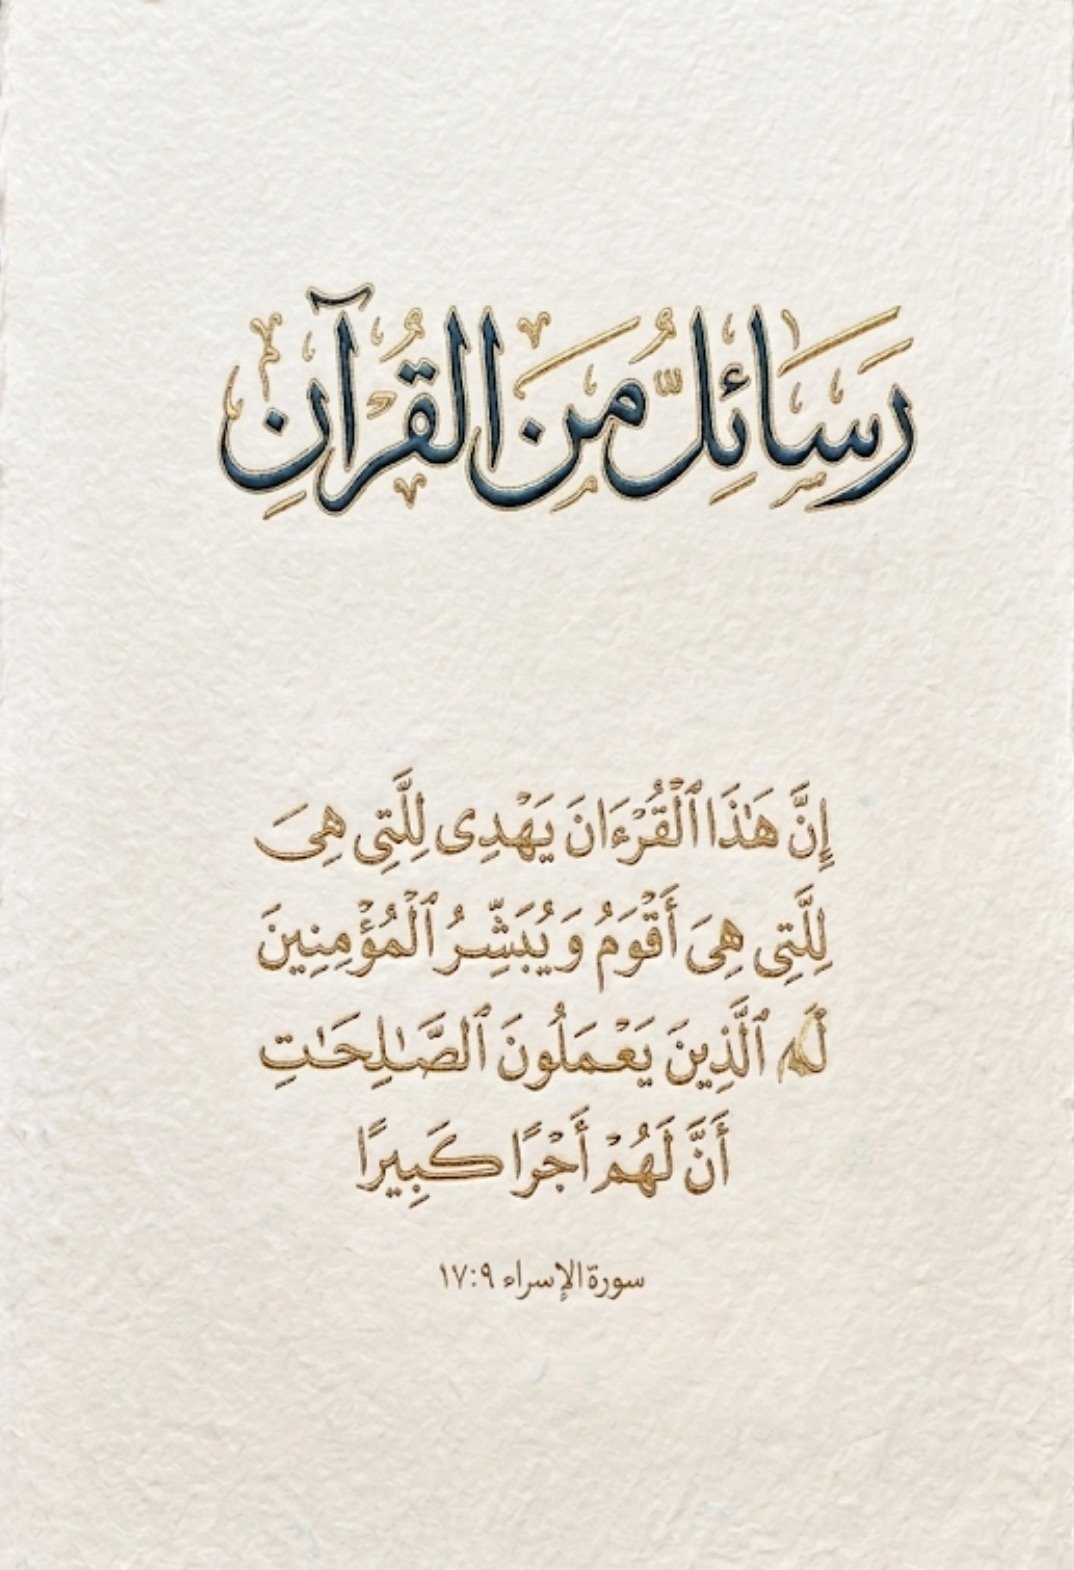 رَسَائِلُ مِّنَ الْقُرْآنِ
إِنَّ هَٰذَا ٱلْقُرْءَانَ يَهْدِى لِلَّتِى هِىَ
لِلَّتِى هِىَ أَقْوَمُ وَيُبَشِّرُ ٱلْمُؤْمِنِينَ
ٱلَّذِينَ يَعْمَلُونَ ٱلصَّٰلِحَٰتِ
أَنَّ لَهُمْ أَجْرًا كَبِيرًا
سورة الإسراء ١٧:٩